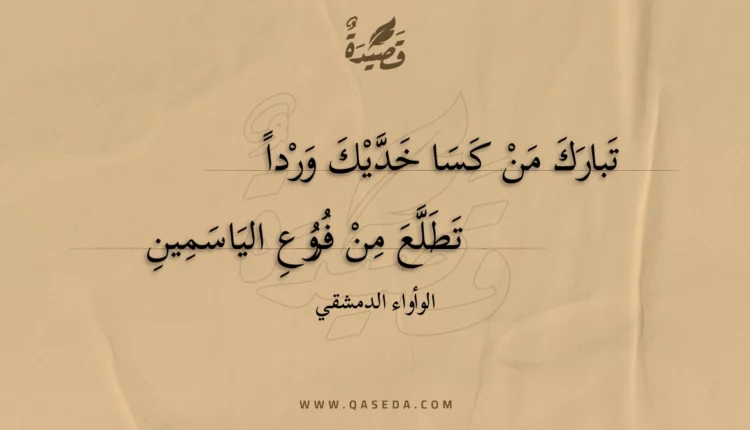 قَصِيْدَةٌ
تَبارَكَ مَنْ كَسَا خَدَّيْكَ وَرْداً
تَطَلَّعَ مِنْ فُرُوُعِ اليَاسَمِينِ
الوأواء الدمشقي
WWW.QASEDA.COM